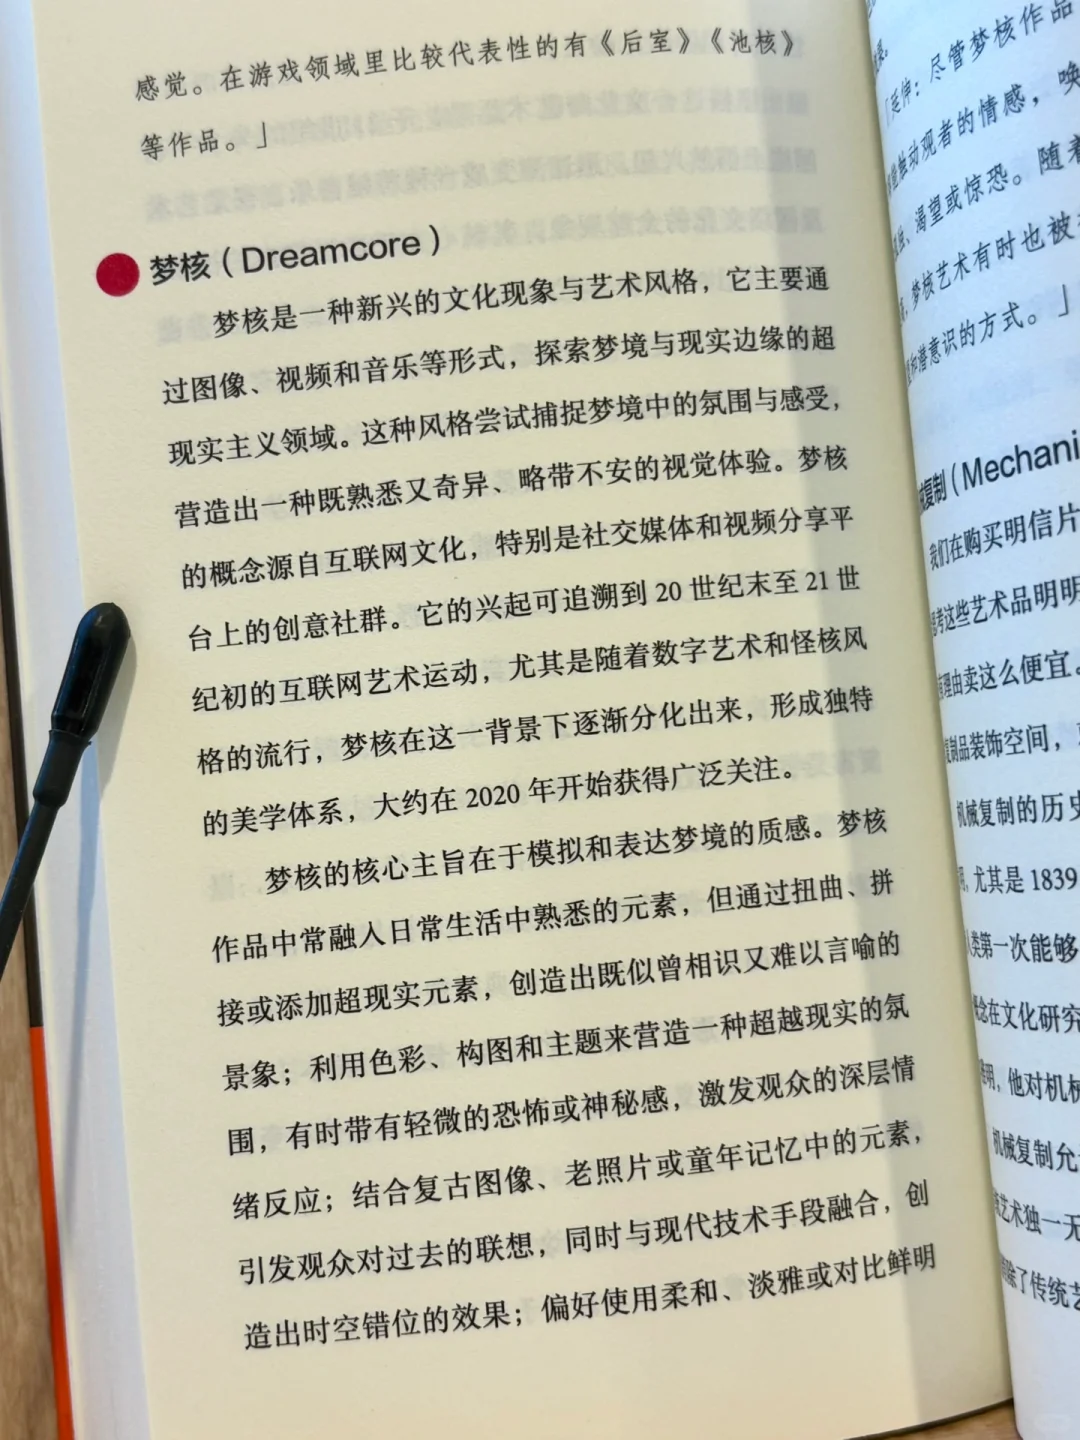 感觉。在游戏领域里比较代表性的有《后室》《池核》
等作品。」
梦核（Dreamcore）
梦核是一种新兴的文化现象与艺术风格，它主要通
过图像、视频和音乐等形式，探索梦境与现实边缘的超
现实主义领域。这种风格尝试捕捉梦境中的氛围与感受，
营造出一种既熟悉又奇异、略带不安的视觉体验。梦核
的概念源自互联网文化，特别是社交媒体和视频分享平
台上的创意社群。它的兴起可追溯到 20 世纪末至 21 世
纪初的互联网艺术运动，尤其是随着数字艺术和怪核风
格的流行，梦核在这一背景下逐渐分化出来，形成独特
的美学体系，大约在 2020 年开始获得广泛关注。
梦核的核心主旨在于模拟和表达梦境的质感。梦核
作品中常融入日常生活中熟悉的元素，但通过扭曲、拼
接或添加超现实元素，创造出既似曾相识又难以言喻的
景象；利用色彩、构图和主题来营造一种超越现实的氛
围，有时带有轻微的恐怖或神秘感，激发观众的深层情
绪反应；结合复古图像、老照片或童年记忆中的元素，
引发观众对过去的联想，同时与现代技术手段融合，创
造出时空错位的效果；偏好使用柔和、淡雅或对比鲜明
「延伸：尽管梦核作品
触动观者的情感，唤
、渴望或惊恐。随着
，梦核艺术有时也被
和潜意识的方式。」
复制（Mechani
我们在购买明信片
考这些艺术品明明
理由卖这么便宜。
复制品装饰空间，
机械复制的历史
，尤其是 1839
人类第一次能够
概念在文化研究
明，他对机械
机械复制允
艺术独一无
除了传统艺